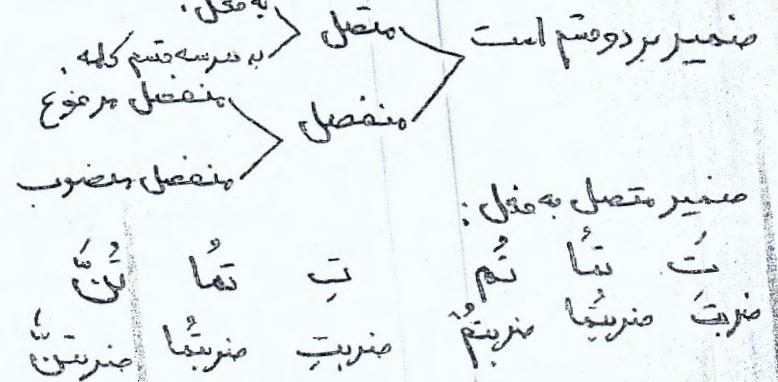 به فعل :
ضمیر بر دو قسم است متصل
به هر سه قسم کلمه .
منفصل مرفوع
منفصل
منفصل منصوب
ضمیر متصل به فعل :
تَ تُما تُم تِ تُما تُنَّ
ضربتَ ضربتُما ضربتُم ضربتِ ضربتُما ضربتنَّ